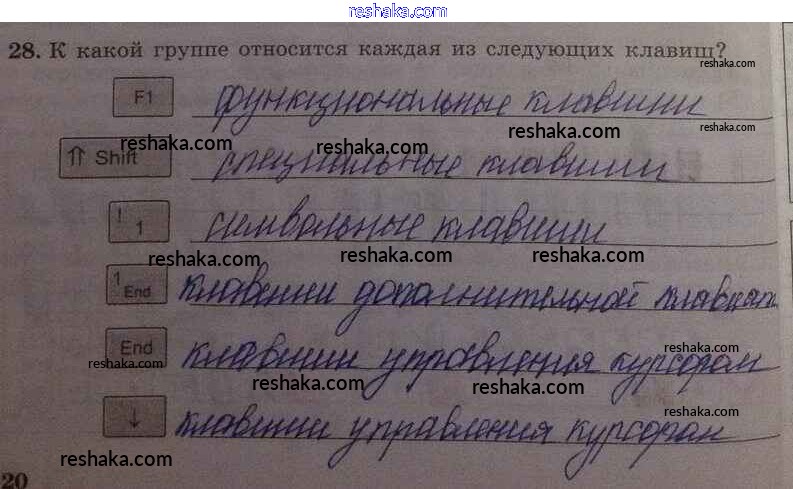 reshaka.com
28. К какой группе относится каждая из следующих клавиш?
reshaka.com
F1 функциональные клавиши
reshaka.com
reshaka.com reshaka.com
⇑ Shift специальные клавиши
reshaka.com reshaka.com
! 1 символьные клавиши
reshaka.com reshaka.com
1 End клавиши дополнительной клавиат
reshaka.com reshaka.com
End клавиши управления курсором
reshaka.com reshaka.com
reshaka.com reshaka.com
↓ клавиши управления курсором
reshaka.com
reshaka.com reshaka.com
20